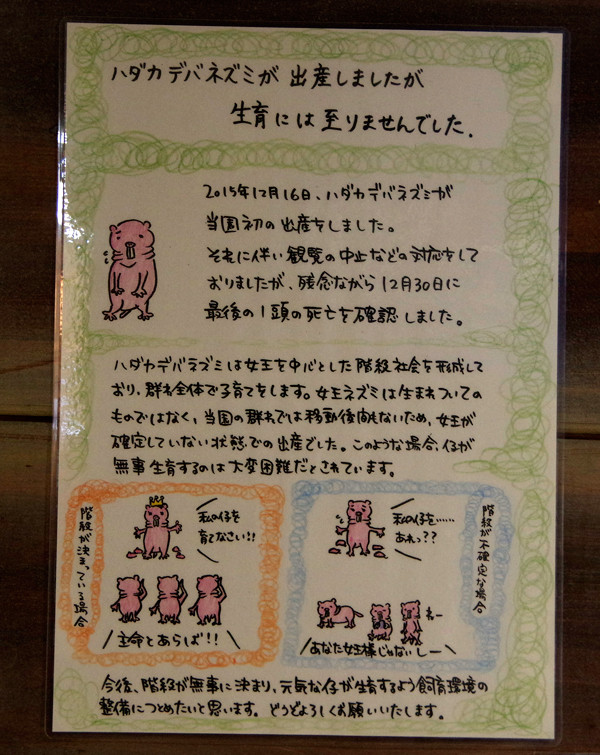 ハダカデバネズミが出産しましたが
生育には至りませんでした.
2015年12月16日、ハダカデバネズミが
当園初の出産をしました。
それに伴い観覧の中止などの対応をして
おりましたが、残念ながら12月30日に
最後の1頭の死亡を確認しました。
ハダカデバネズミは女王を中心とした階級社会を形成して
おり、群れ全体で子育てをします。女王ネズミは生まれついての
ものではなく、当園の群れでは移動後間もないため、女王が
確定していない状態での出産でした。このような場合、仔が
無事生育するのは大変困難だとされています。
階級が決まっている場合
私の仔を
育てなさい!!
主命とあらば!!
階級が不確定な場合
私の仔を……
あれっ??
ねー
あなた女王様じゃないしー
今後、階級が無事に決まり、元気な仔が生育するよう飼育環境の
整備につとめたいと思います。どうぞよろしくお願いいたします。